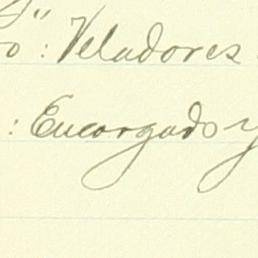 o: Veladores
: Encargado y